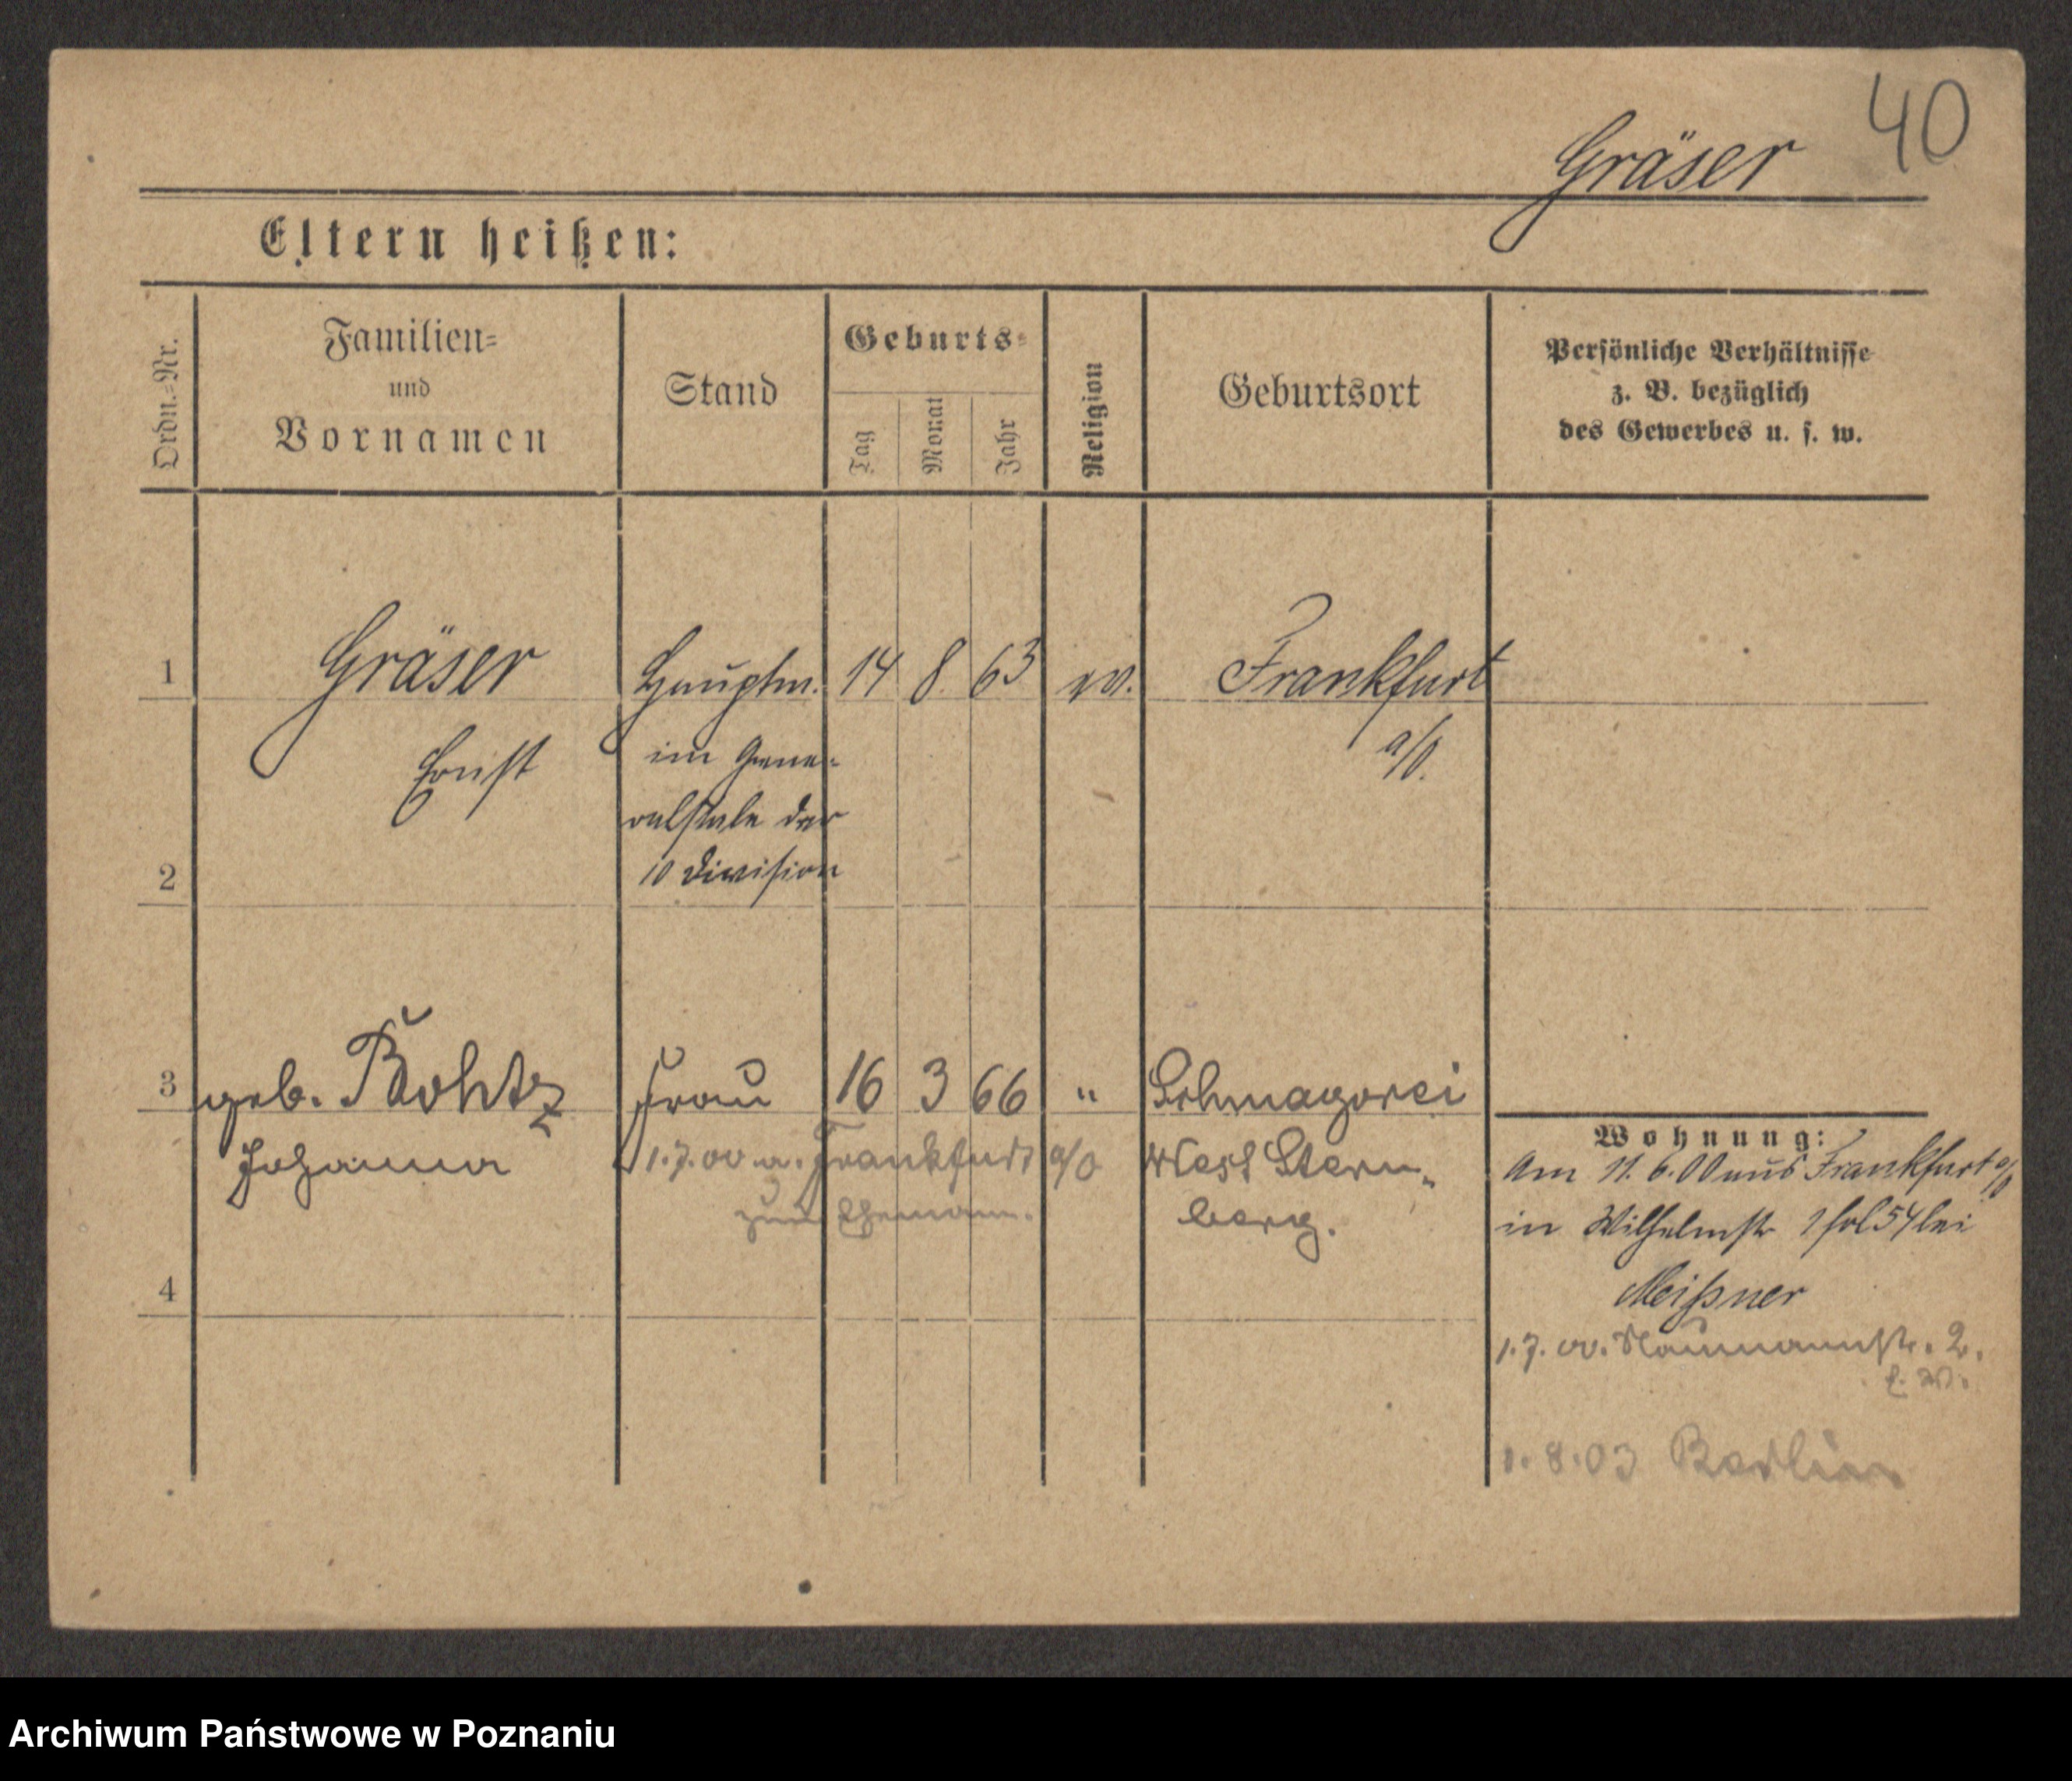 40
Gräser
Eltern heißen:
Ordn.=Nr.
Familien=
und
Vornamen
Stand
Geburts=
Tag
Monat
Jahr
Religion
Geburtsort
Persönliche Verhältnisse
z. B. bezüglich
des Gewerbes u. s. w.
1 Gräser Hauptm. 14 8. 63 ev. Frankfurt
Ernst im Gene- a/O.
ralstabe der
2 10 Division
3 geb. Bohtz Frau 16 3 66 " Schmagorei
Johanna 1.7.00 a. Frankfurt a/O West Stern-
zum Ehemann. berg.
4
Wohnung:
Am 11.6.00 aus Frankfurt a/O
in Wilhelmstr 54 bei
Meißner
1.7.00. Naumannstr. 2.
1.8.03 Berlin
Archiwum Państwowe w Poznaniu